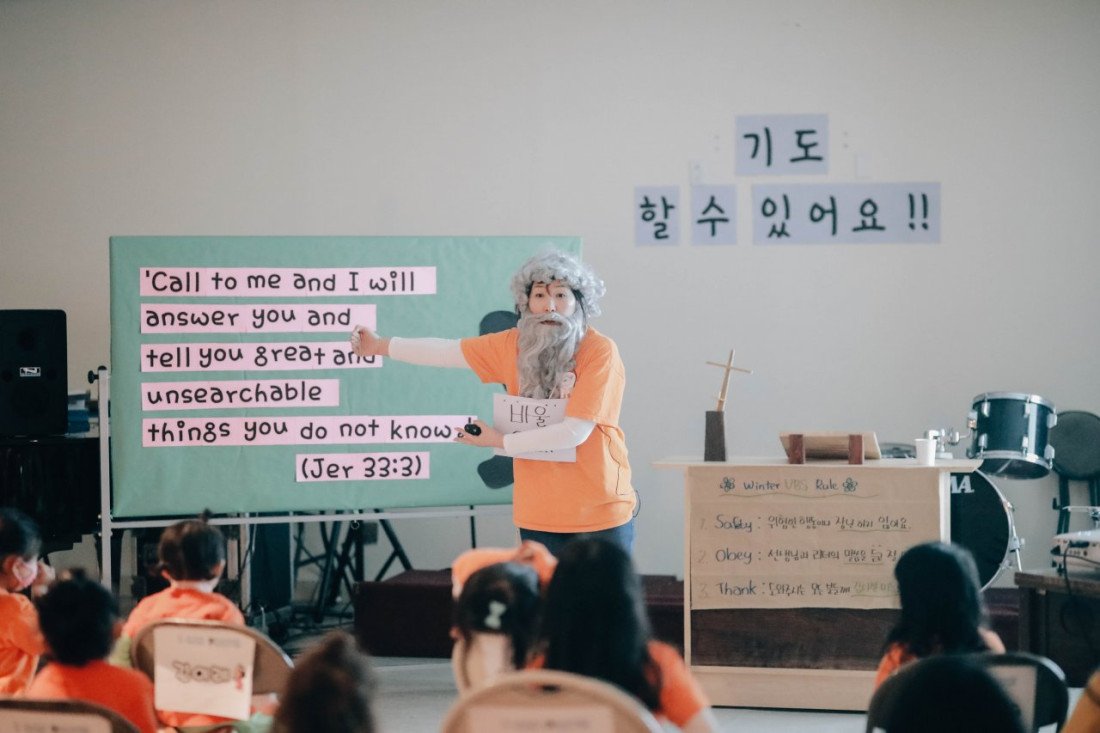 기도
할 수 있어요!!
'Call to me and I will
answer you and
tell you great and
unsearchable
things you do not know.'
(Jer 33:3)
바울
Winter VBS Rule
1. Safety :
2. Obey : 선생님과 리더의 말씀을 듣고
3. Thank : 도와주시는 모든 분들께